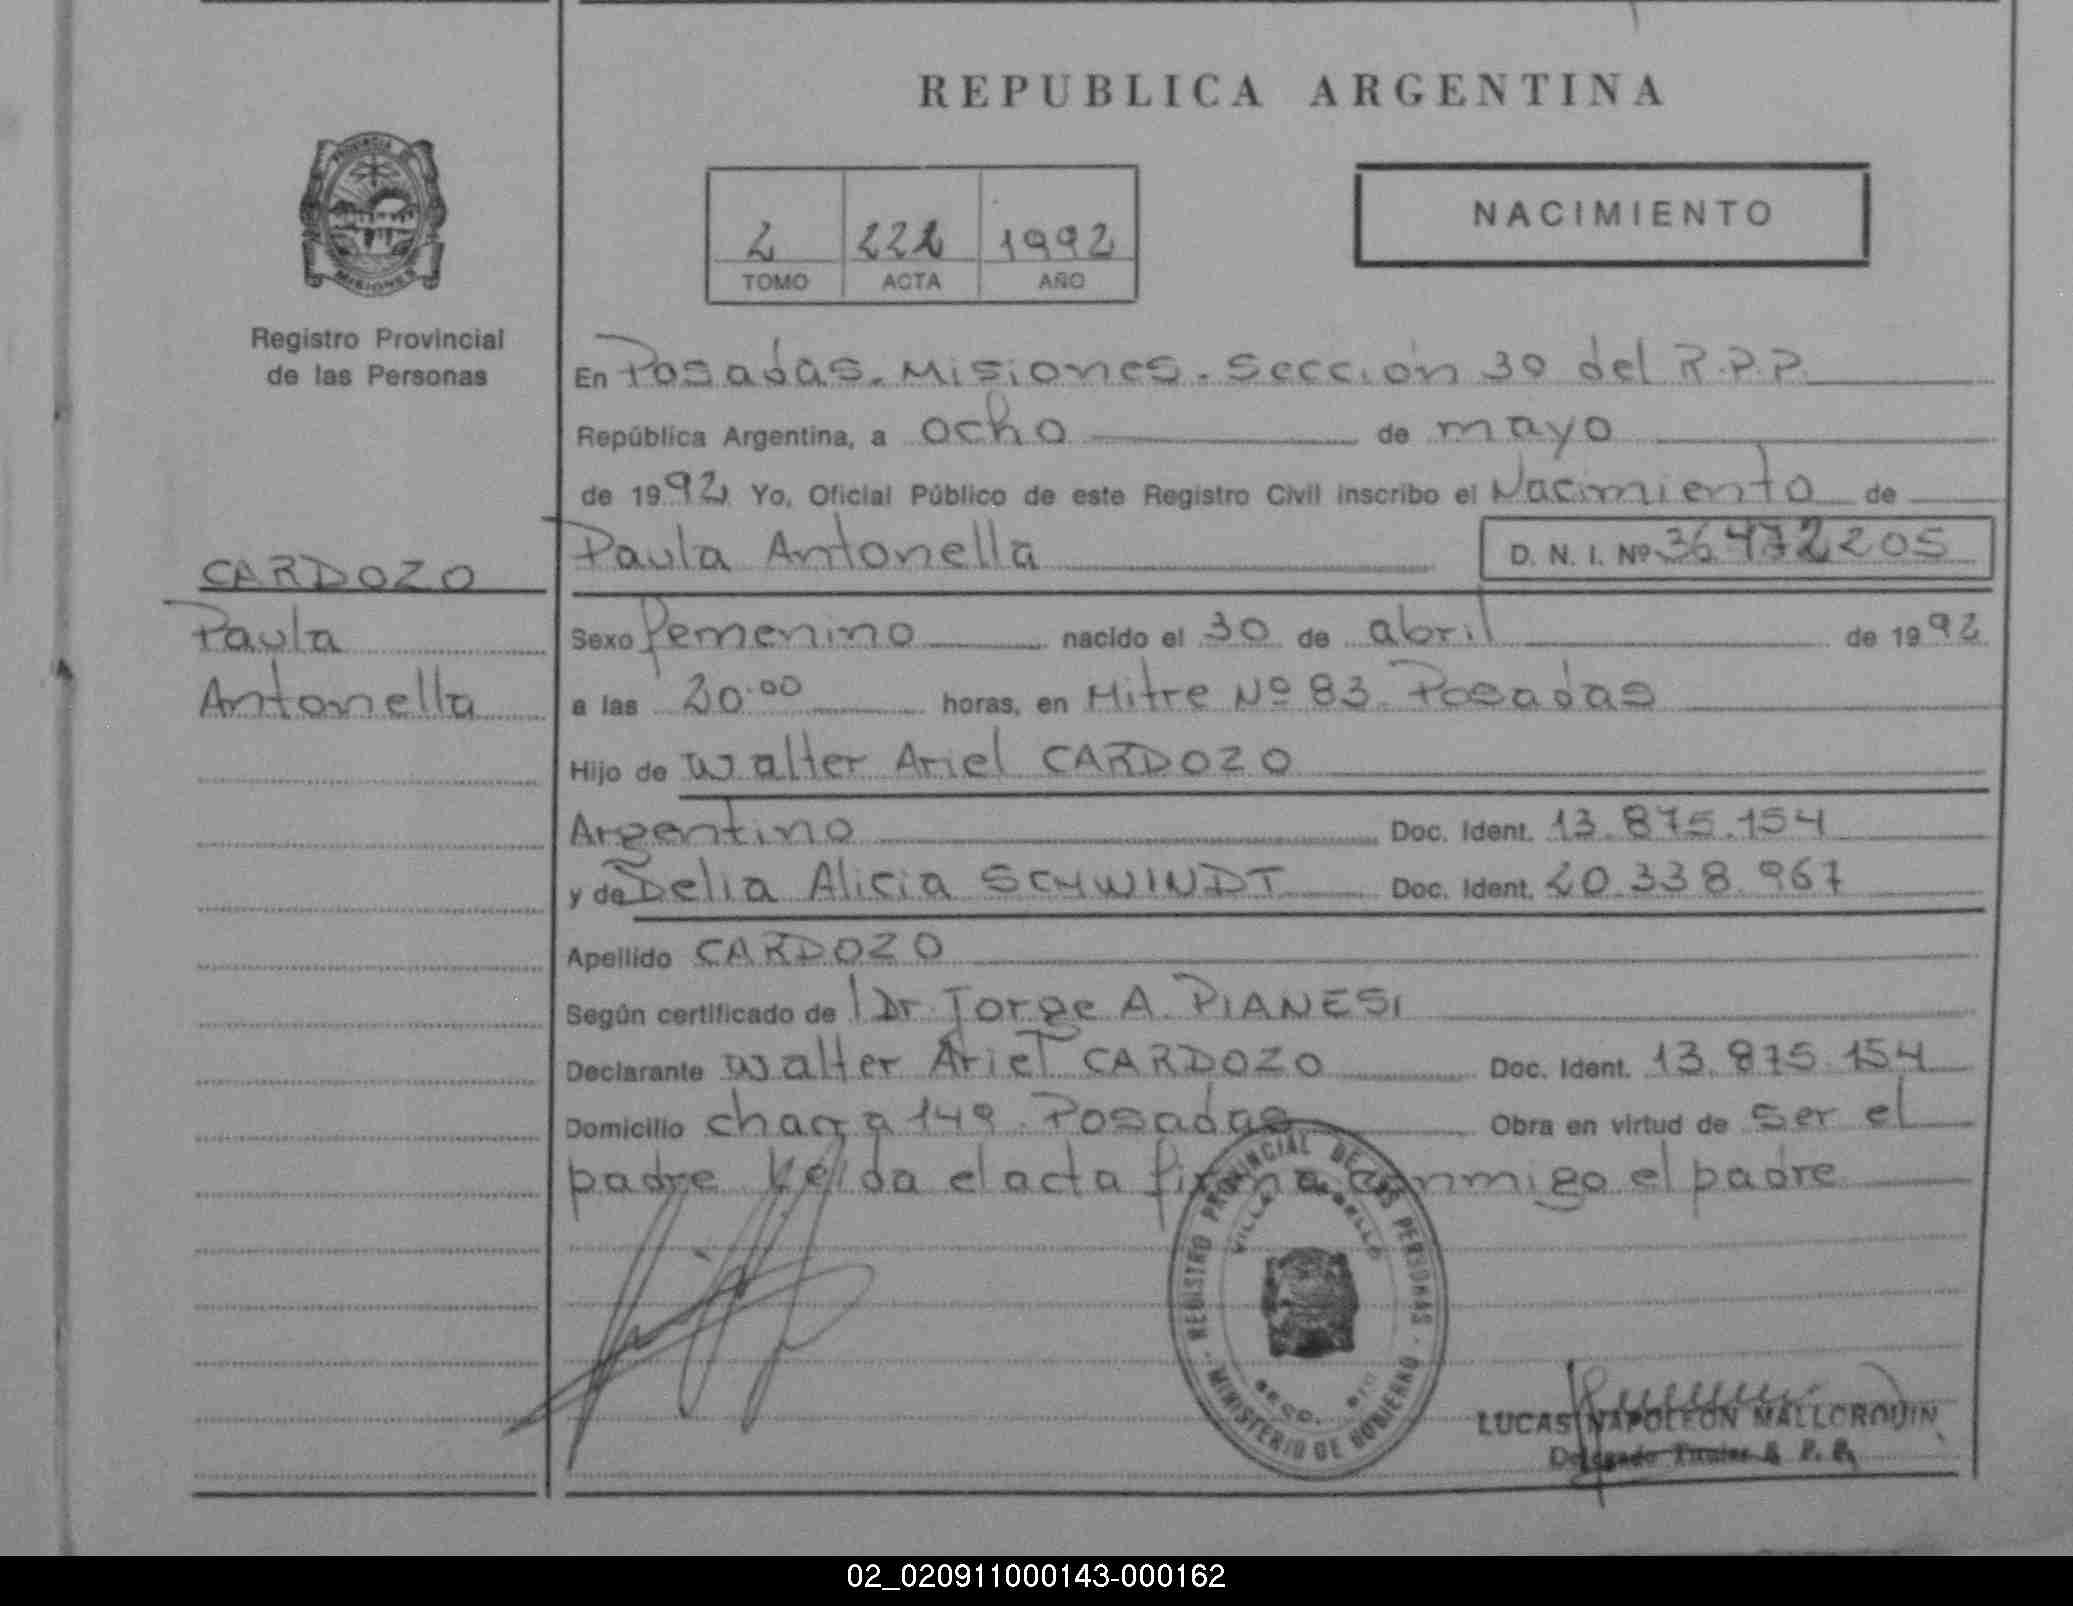 REPUBLICA ARGENTINA
PROVINCIA DE
MISIONES
Registro Provincial
de las Personas
2 222 1992
TOMO ACTA AÑO
NACIMIENTO
En Posadas. Misiones. Sección 30 del R.P.P.
República Argentina, a ocho de mayo
de 1992 Yo, Oficial Público de este Registro Civil inscribo el Nacimiento de
CARDOZO
Paula
Antonella
Paula Antonella D. N. I. Nº 36.472205
Sexo femenino nacido el 30 de abril de 1992
a las 20.00 horas, en Mitre Nº 83. Posadas
Hijo de Walter Ariel CARDOZO
Argentino Doc. Ident. 13.875.154
y de Delia Alicia SCHWINDT Doc. Ident. 20.338.967
Apellido CARDOZO
Según certificado de Dr. Jorge A. PIANESI
Declarante Walter Ariel CARDOZO Doc. Ident. 13.875.154
Domicilio chacra 149. Posadas Obra en virtud de ser el
padre. Leida el acta firma conmigo el padre
REGISTRO PROVINCIAL DE LAS PERSONAS
MINISTERIO DE GOBIERNO
VILLA
LUCAS NAPOLEON MALLORQUIN
Delegado Titular R. P. P.
02_020911000143-000162